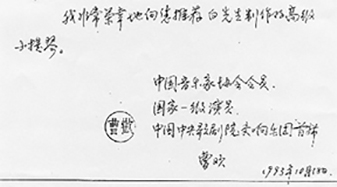 我非常荣幸地向您推荐白先生制作的高级
小提琴。
中国音乐家协会会员
国家一级演员
中国中央歌剧院交响乐团首席
曹
1993年10月18日